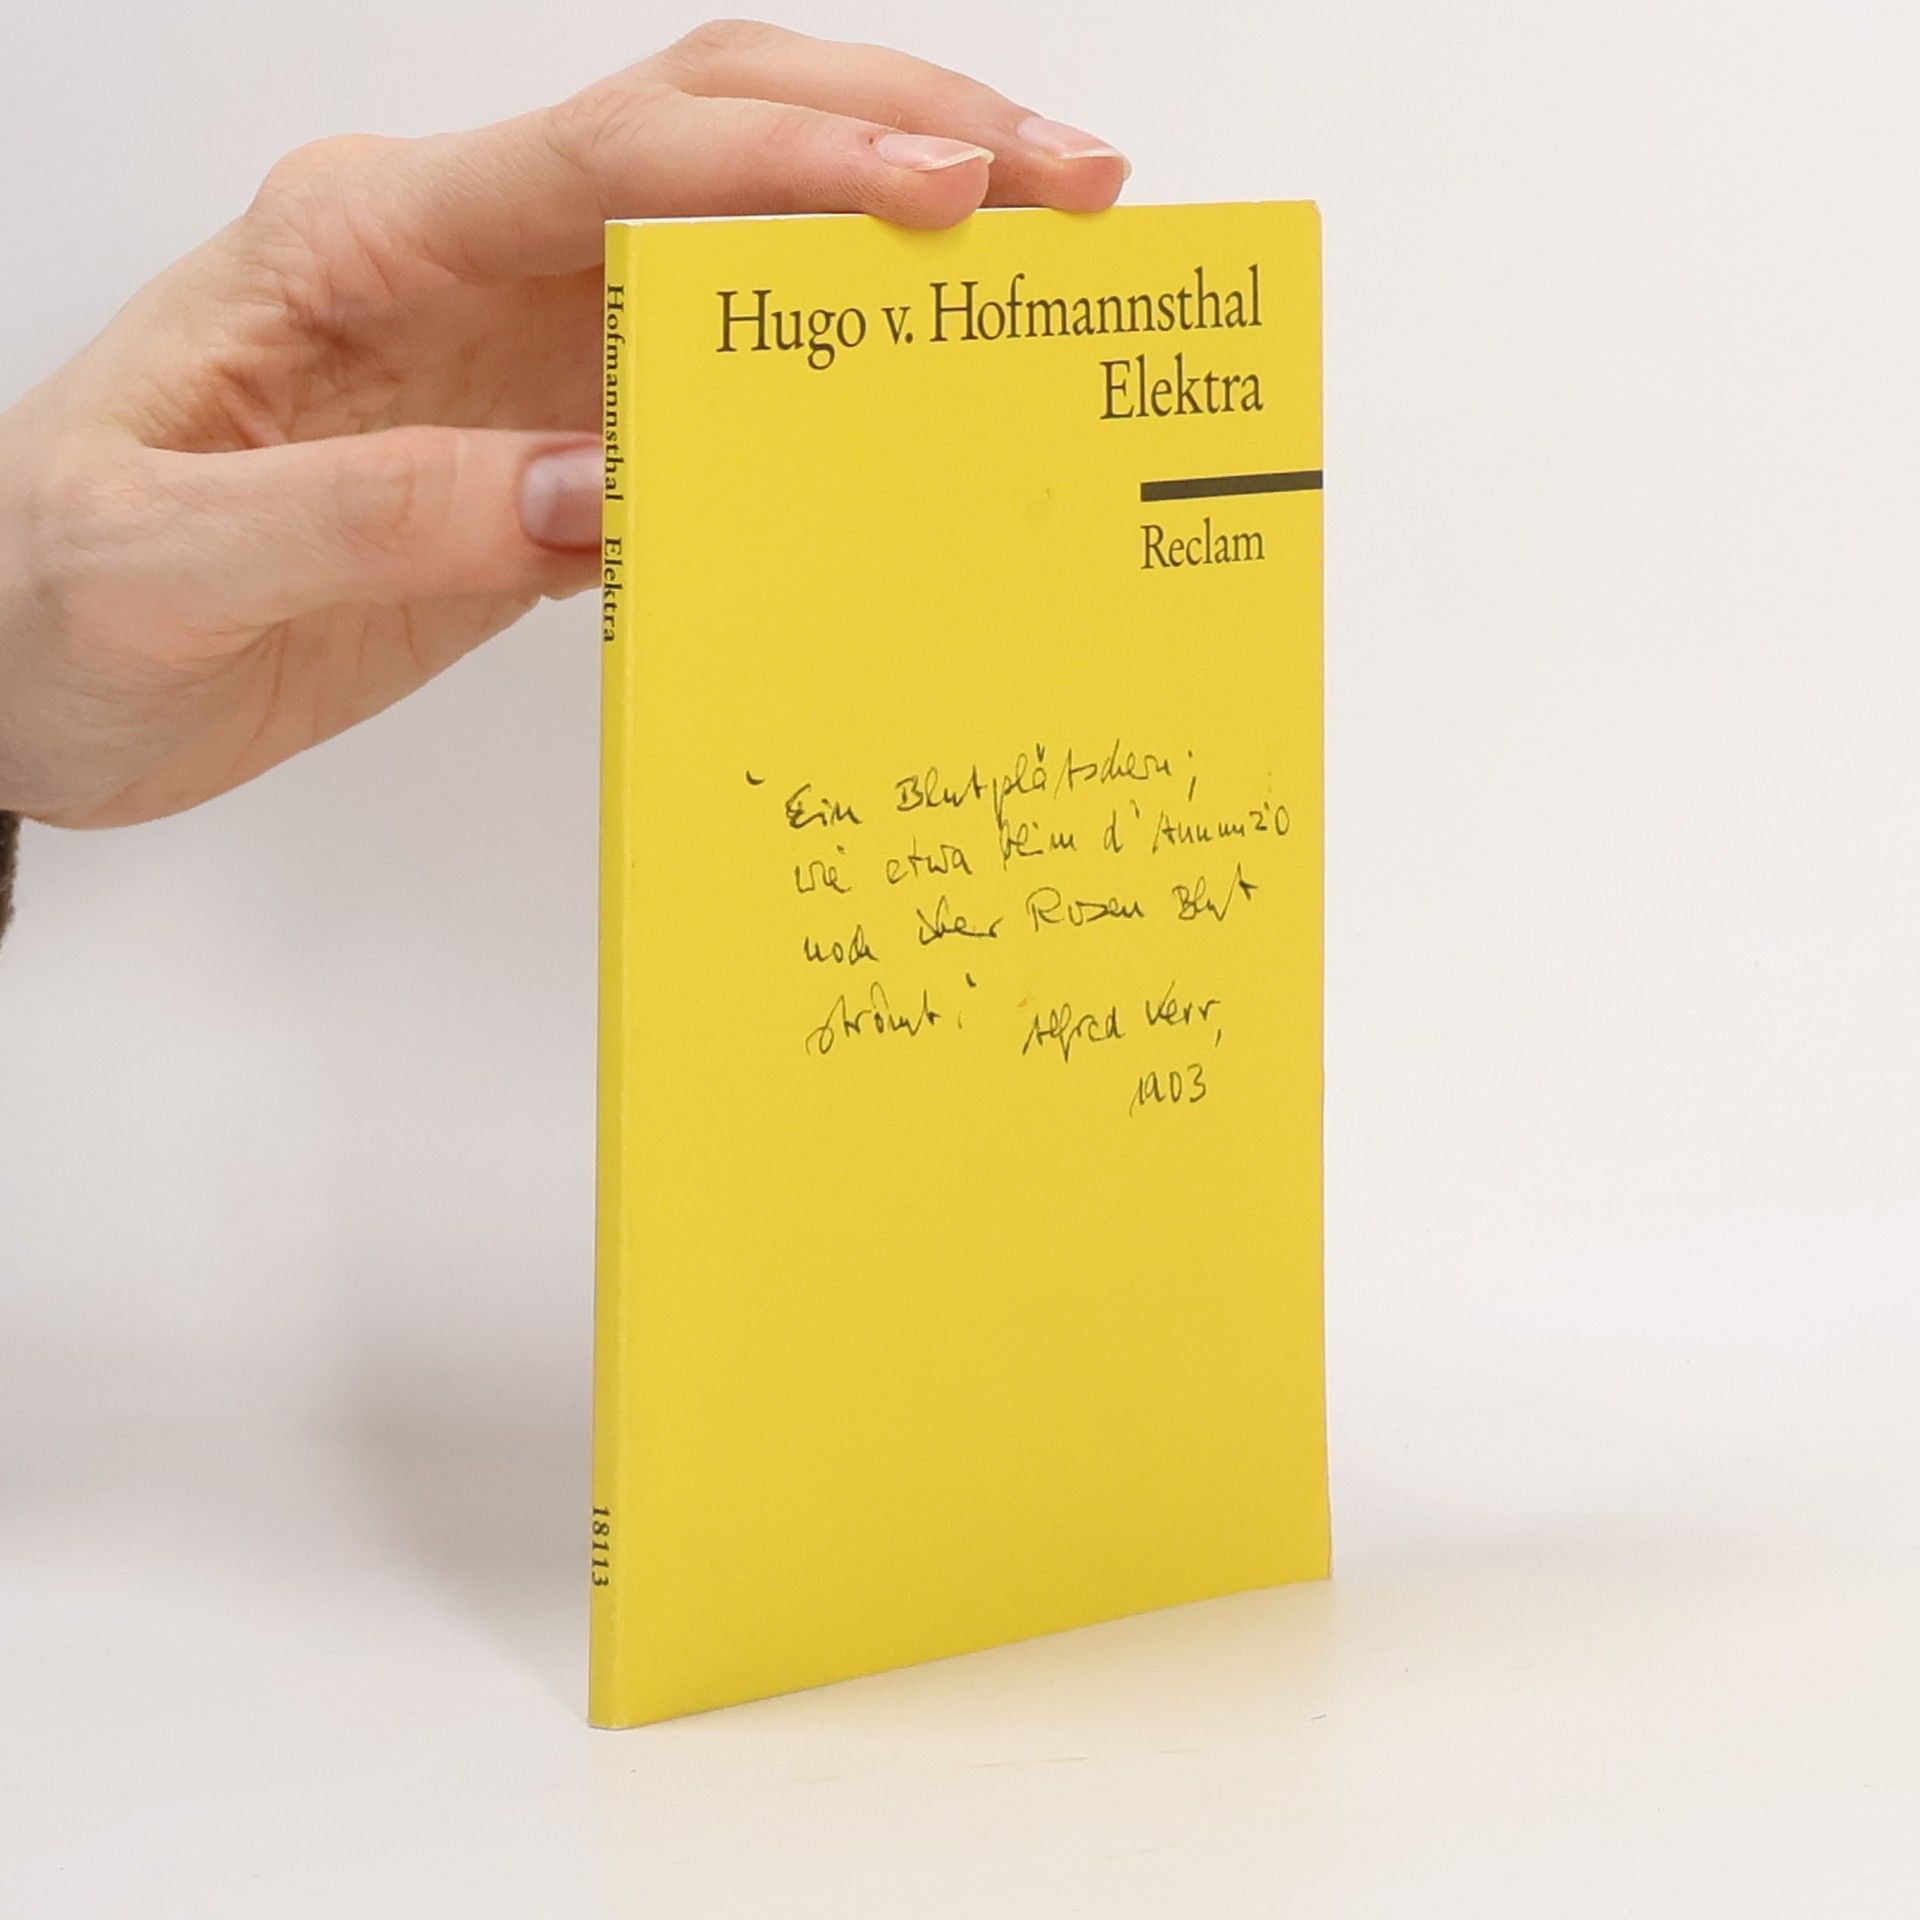 Hugo v. Hofmannsthal
Elektra
Reclam
' Ein Blutplätschern;
wie etwa beim d'Annunzio
noch über Rosen Blut
strömt.' Alfred Kerr,
1903
Hofmannsthal Elektra
18113